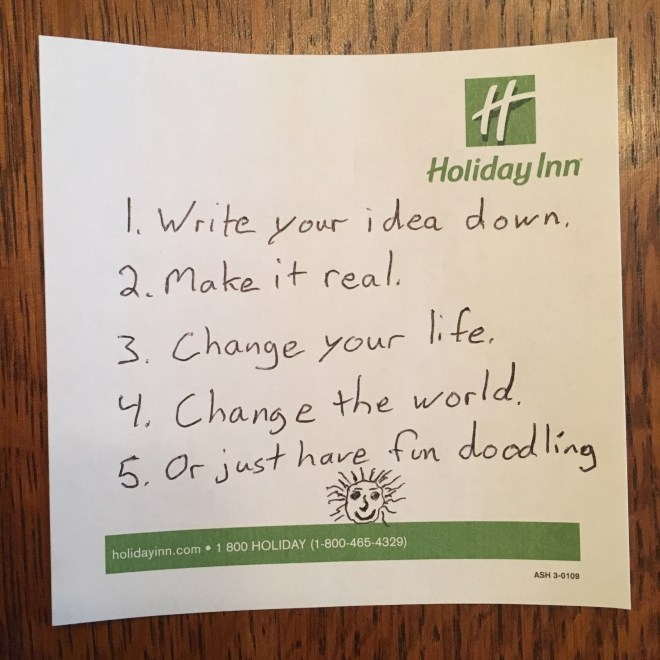 H
Holiday Inn
1. Write your idea down.
2. Make it real.
3. Change your life.
4. Change the world.
5. Or just have fun doodling
holidayinn.com • 1 800 HOLIDAY (1-800-465-4329)
ASH 3-0109